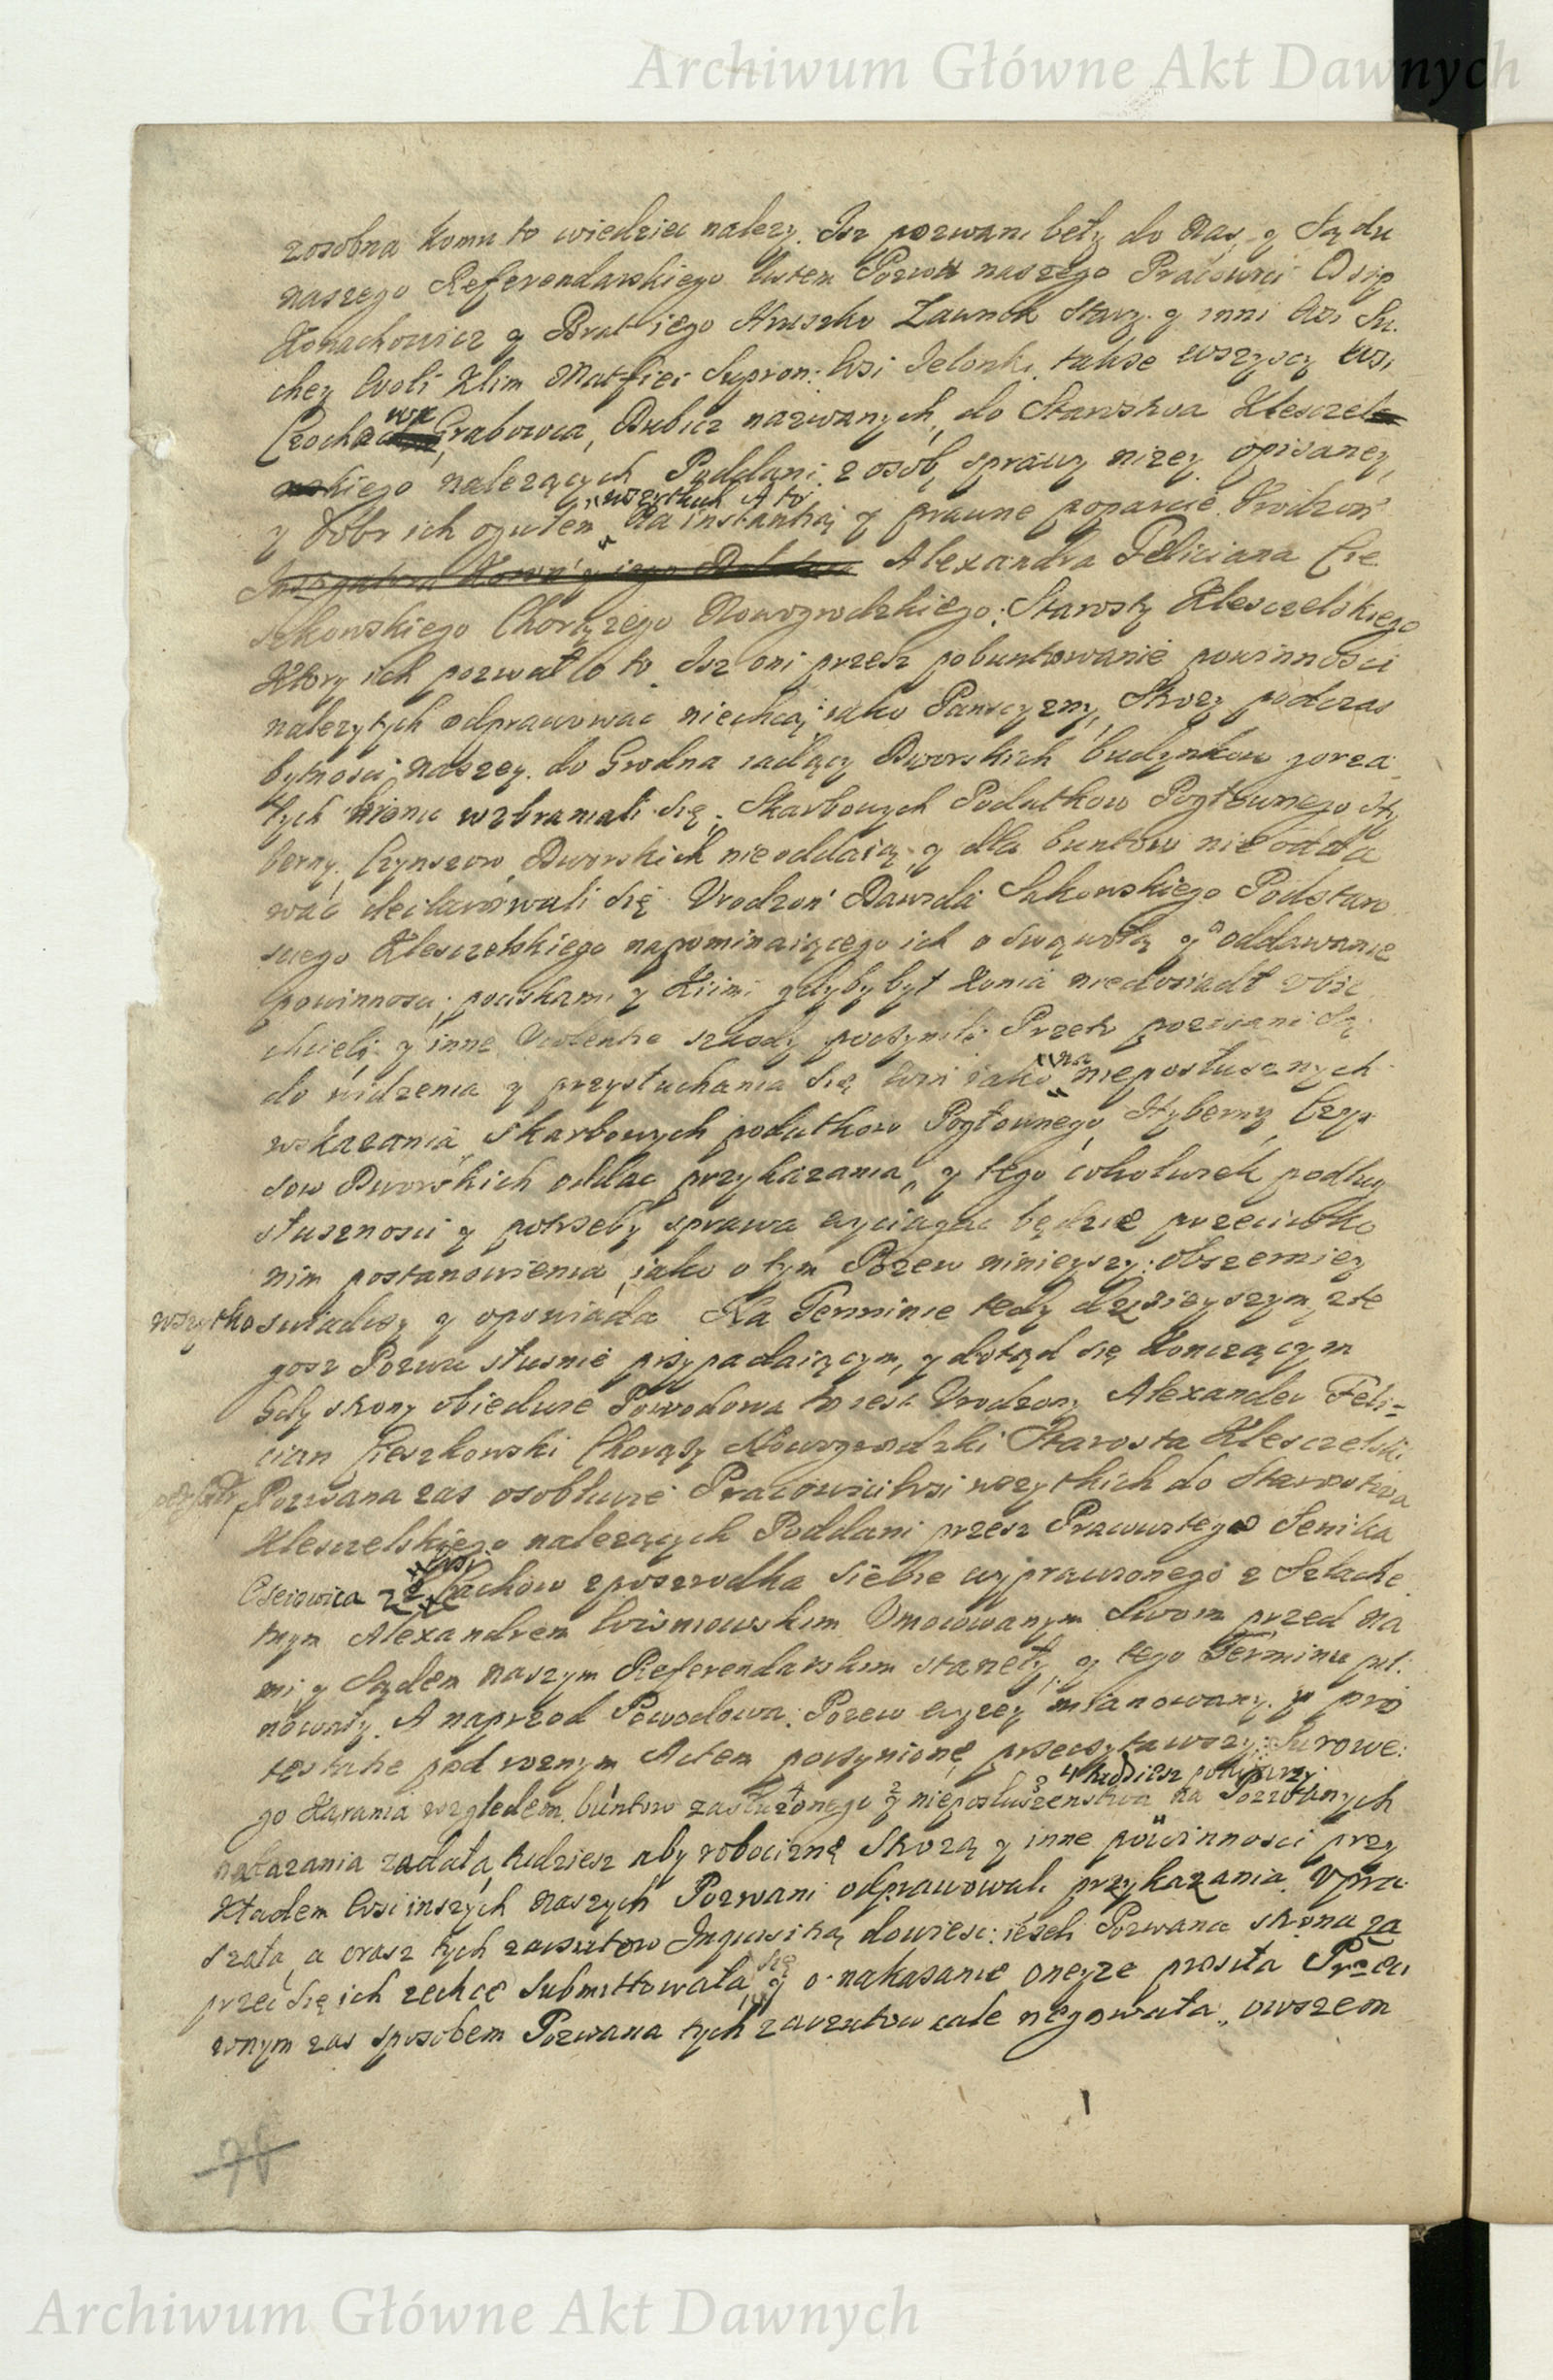 Archiwum Główne Akt Dawnych
zosobna komu to wiedziec nalezy. Isz pozwani beły do Nas, y Sądu
naszego Referendarskiego listem Pozwu naszego Pracowici Osip
Konachowicz y Brat iego Hruszko Zawnok Starz. y inni Wsi Su
chey Woli Klim Matfiei Supron: Wsi Jelonki, takze wszyscy Wsi
Grabowca, Dubicz nazwanych, do Starostwa Klesczel
skiego nalezących Poddani z osób, sprawy nizey opisaney,
wszytkich A to
y Dobr ich ogułem, Na instantią y prawne poparcie Urodzon
Alexandra Feliciana Cie
szkowskiego Chorązego Nowogrodzkiego: Starosty Klesczelskiego
Ktory ich pozwał o to, Isz oni przez pobuntowanie powinnosci
nalezytych odprawowac niechcą, iako Panszczyzny, Strozy podczas
bytnosci naszey do Grodna iadący Dworskich budynkow gorza
łych wzbraniali się, Skarbowych Podatkow Pogłownego Hy
berny, Czynszow Dworskich nie oddaią, y dla buntow nie odda
wać declarowali się Urodzon Dawida Sakowskiego Podstaro
sciego Klesczelskiego napominaiącego ich o swąwolą y oddawanie
powinnosci, pociskami y Kiimi gdyby był konia niedosiadł
chcieli y inne Violentie szkody poczynili: Przeto pozwani Są
do widzenia y przysłuchania się Win iako na nieposłusznych
wskazania, skarbowych podatkow Pogłownego, Hyberny, Czyn
szow Dworskich oddac przykazania, y tego cokolwiek podług
słusznosci y potrzeby sprawa wyciągac będzie przeciwko
nim postanowienia, iako o tym Pozew ninieyszy: obszerniey
wszytko swiadczy y opowiada Na Terminie tedy dzisieyszym, zte
gosz Pozwu słusznie przypadaiącym, y dotąd się konczącym
Gdy strony obiedwie Powodowa to iest Urodzony Alexander Feli=
cian Cieszkowski Chorązy Nowogrodzki Starosta Klesczelski
Pozwana zas osobliwie Pracowici Wsi wszytkich do Starostwa
Klesczelskiego nalezących Poddani przesz Pracowitego Senika
zposzrodka siebie wyprawionego z Szlache
tnym Alexandrem Wisniowskim Umocowanym Swoim przed Na
mi y Sądem naszym Referendarskim staneły, y tego Terminu pil:
nowały. A naprzod Powodowa: Pozew wyzey mianowany. y pro
testatie pod roznym Actem poczynionę przeczytawszy: Surowe:
go karania względem buntow zasłuzonego y nieposłuszenstwa na Pozwanych
nakazania ządała, tudziesz aby robociznę Strozą y inne powinnosci przy
kładem Wsi inszych naszych Pozwani odprawowali przykazania Upra
szała, a orasz tych zarzutow Inquisitią dowiesc: iezeli Pozwana strona za
przec się ich zechce Submittowała się y o nakazanie oneyze prosiła Przeci
wnym zas sposobem Pozwana tych zarzutow cale negowała, owszem
78
Archiwum Główne Akt Dawnych